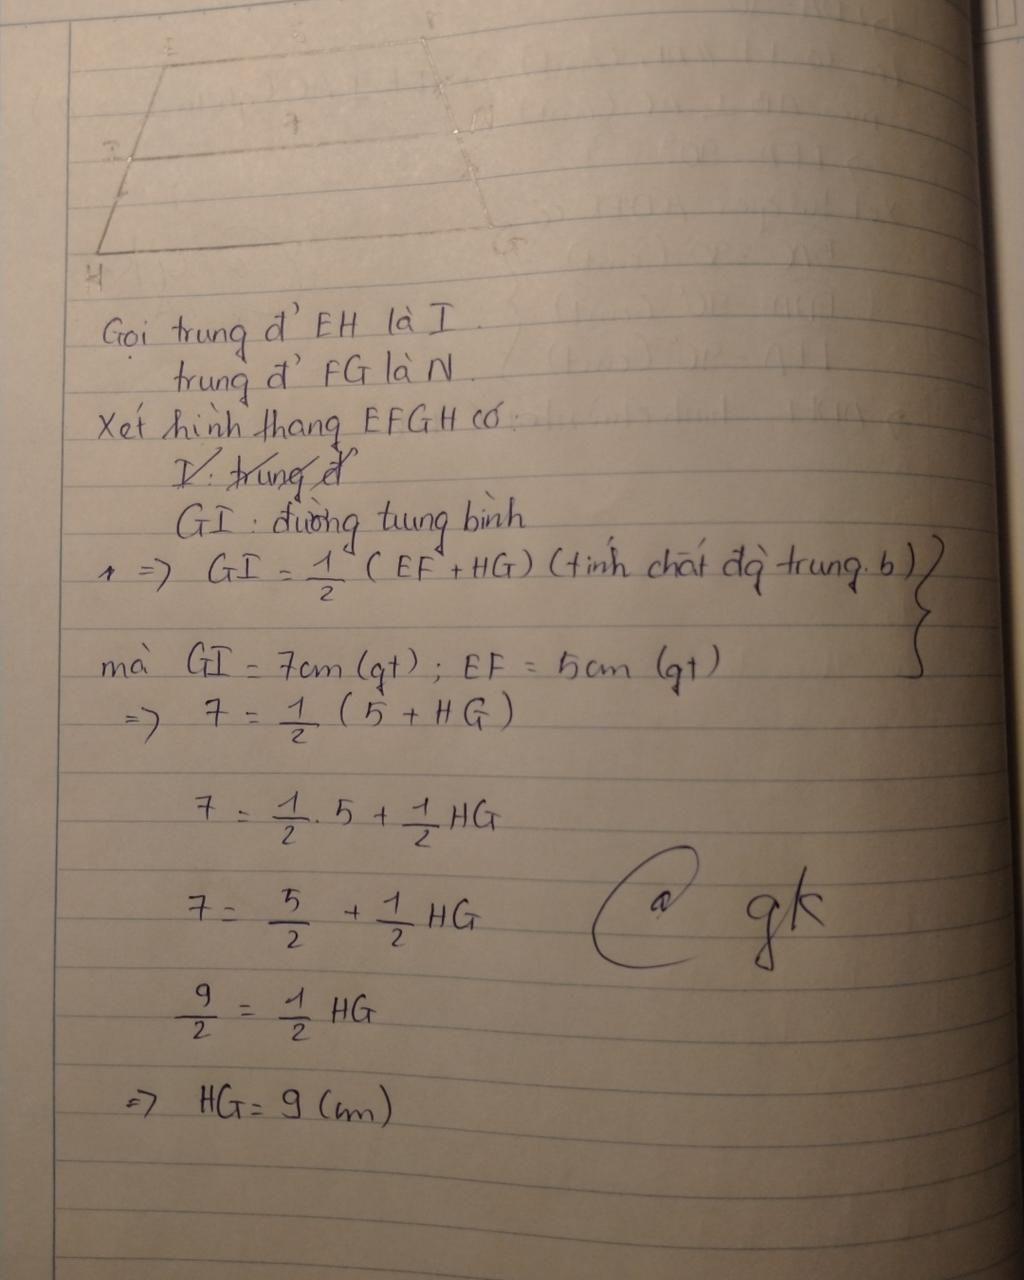 E 5 F
I 7 N
H G
Gọi trung đ' EH là I.
trung đ' FG là N.
Xét hình thang EFGH có:
I: trung đ'
GI: đường trung bình
=> GI = 1/2 (EF + HG) (tính chất đg trung.b) }
mà GI = 7cm (gt); EF = 5cm (gt)
=> 7 = 1/2 (5 + HG)
7 = 1/2 . 5 + 1/2 HG
7 = 5/2 + 1/2 HG
@ gk
9/2 = 1/2 HG
=> HG = 9 (cm)